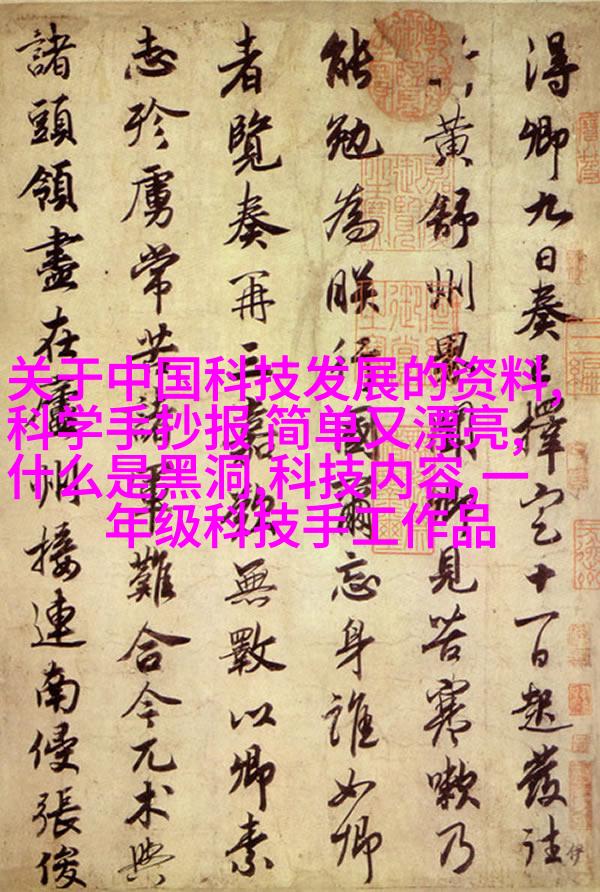 得卿九日奏已擇定十一日起發往
黃舒州界聞卿見苦寒嗽乃
能勉為朕行國爾忘身誰如卿
者覽奏再三嘉歎無斁以卿素
志殄虜常苦諸軍難合今兀朮與
諸頭領盡在廬州接連南侵張俊
关于中国科技发展的资料,
科学手抄报 简单又漂亮,
什么是黑洞,科技内容,一
年级科技手工作品